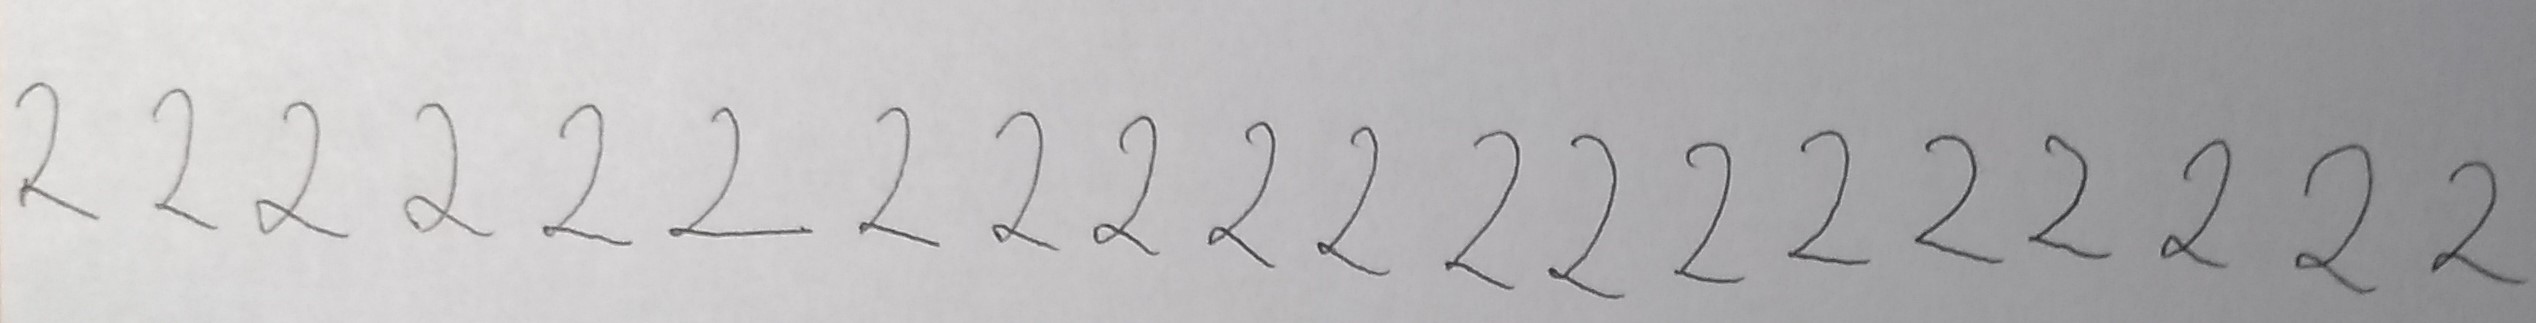 2 2 2 2 2 2 2 2 2 2 2 2 2 2 2 2 2 2 2 2